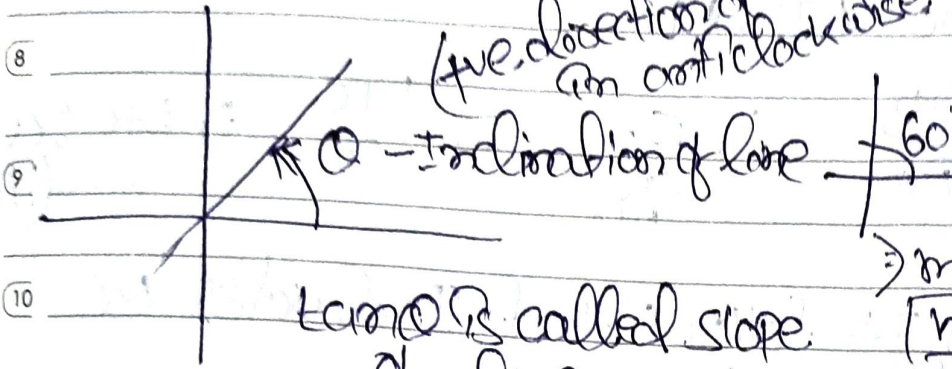 (+ve direction
in anticlockwise
8
θ - Inclination of line
60
9
⇒ m
10
tanθ is called slope